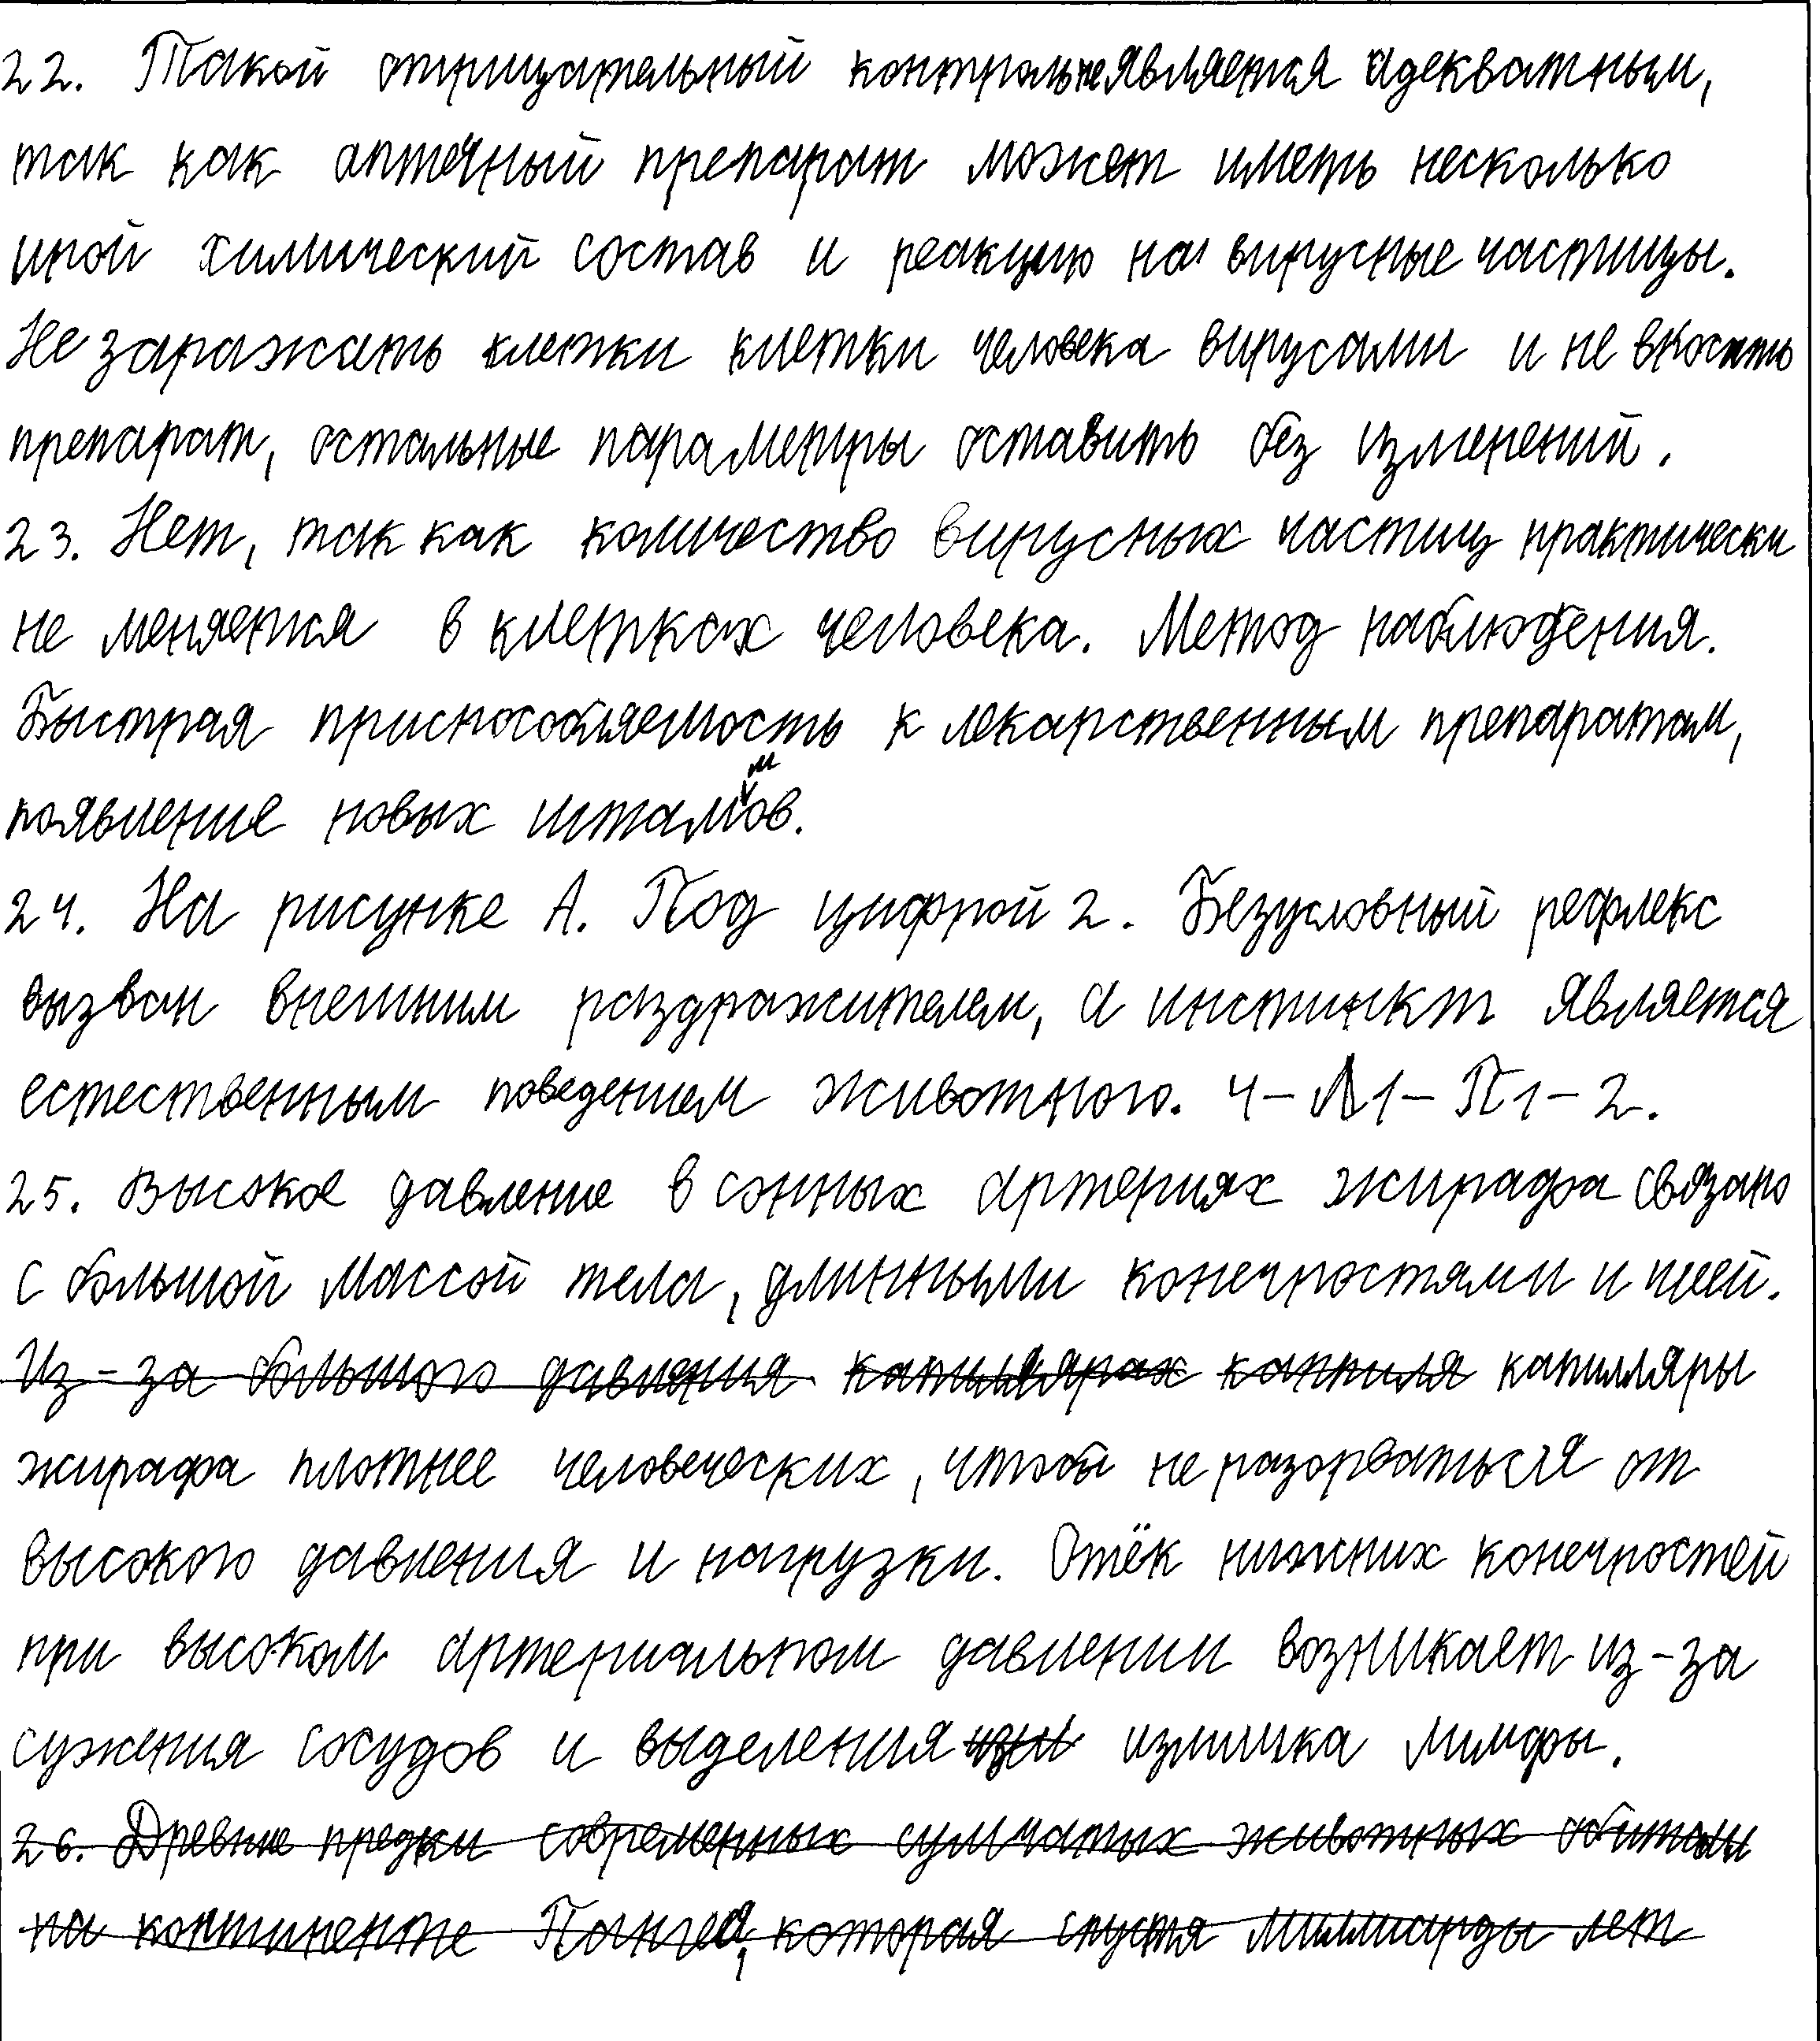 22. Такой отрицательный контроль не является адекватным,
так как аптечный препарат может иметь несколько
иной химический состав и реакцию на вирусные частицы.
Не заражать клетки клетки человека вирусами и не вносить
препарат, остальные параметры оставить без изменений.
23. Нет, так как количество вирусных частиц практически
не меняется в клетках человека. Метод наблюдения.
Быстрая приспособляемость к лекарственным препаратам,
появление новых штаммов.
24. На рисунке А. Под цифрой 2. Безусловный рефлекс
вызван внешним раздражителем, а инстинкт является
естественным поведением животного. 4-Л1-П1-2.
25. Высокое давление в сонных артериях жирафа связано
с большой массой тела, длинными конечностями и шеей.
Из-за большого давления капиллярах капиля капилляры
жирафа плотнее человеческих, чтобы не разорваться от
высокого давления и нагрузки. Отёк нижних конечностей
при высоком артериальном давлении возникает из-за
сужения сосудов и выделения изли излишка лимфы.
26. Древние предки современных сумчатых животных обитали
на континенте Пангея, которая спустя миллиарды лет